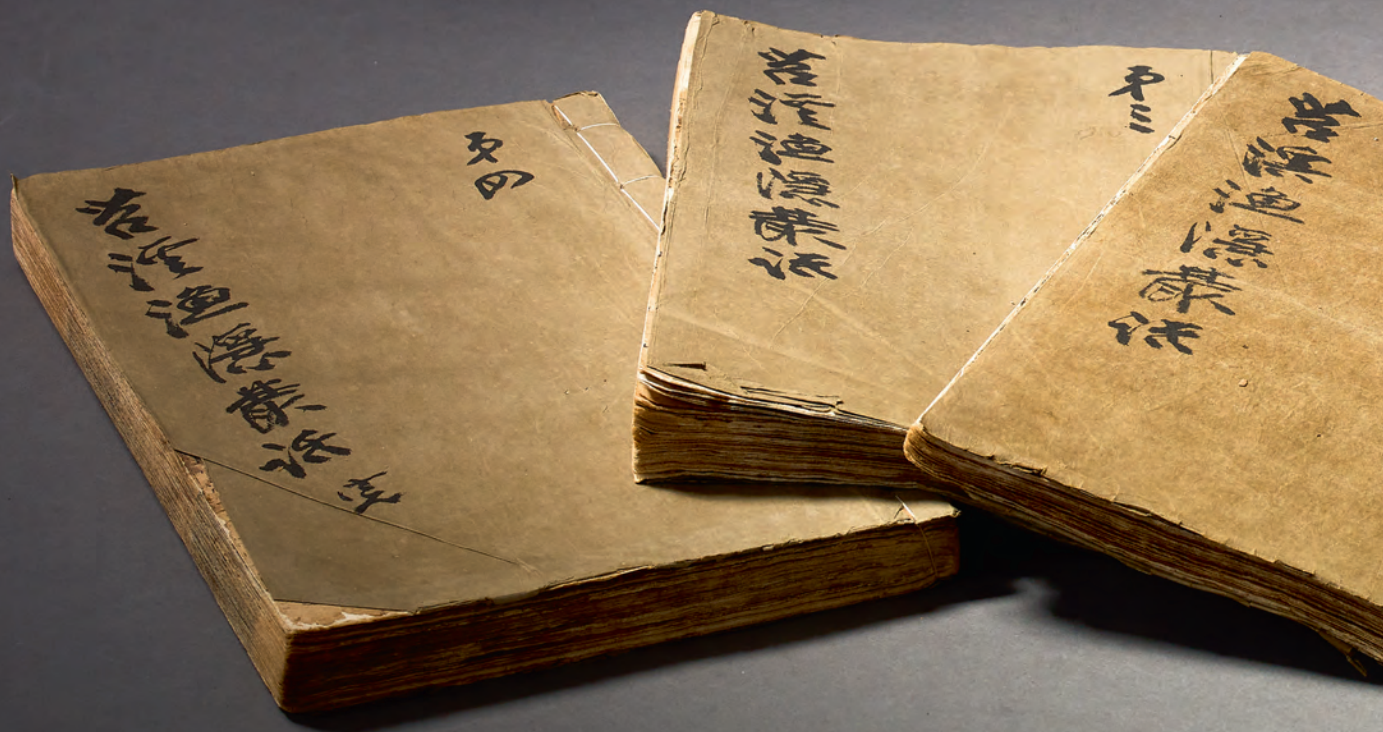 苕溪漁隱叢話
第三
苕溪漁隱叢話
第四
苕溪漁隱叢話